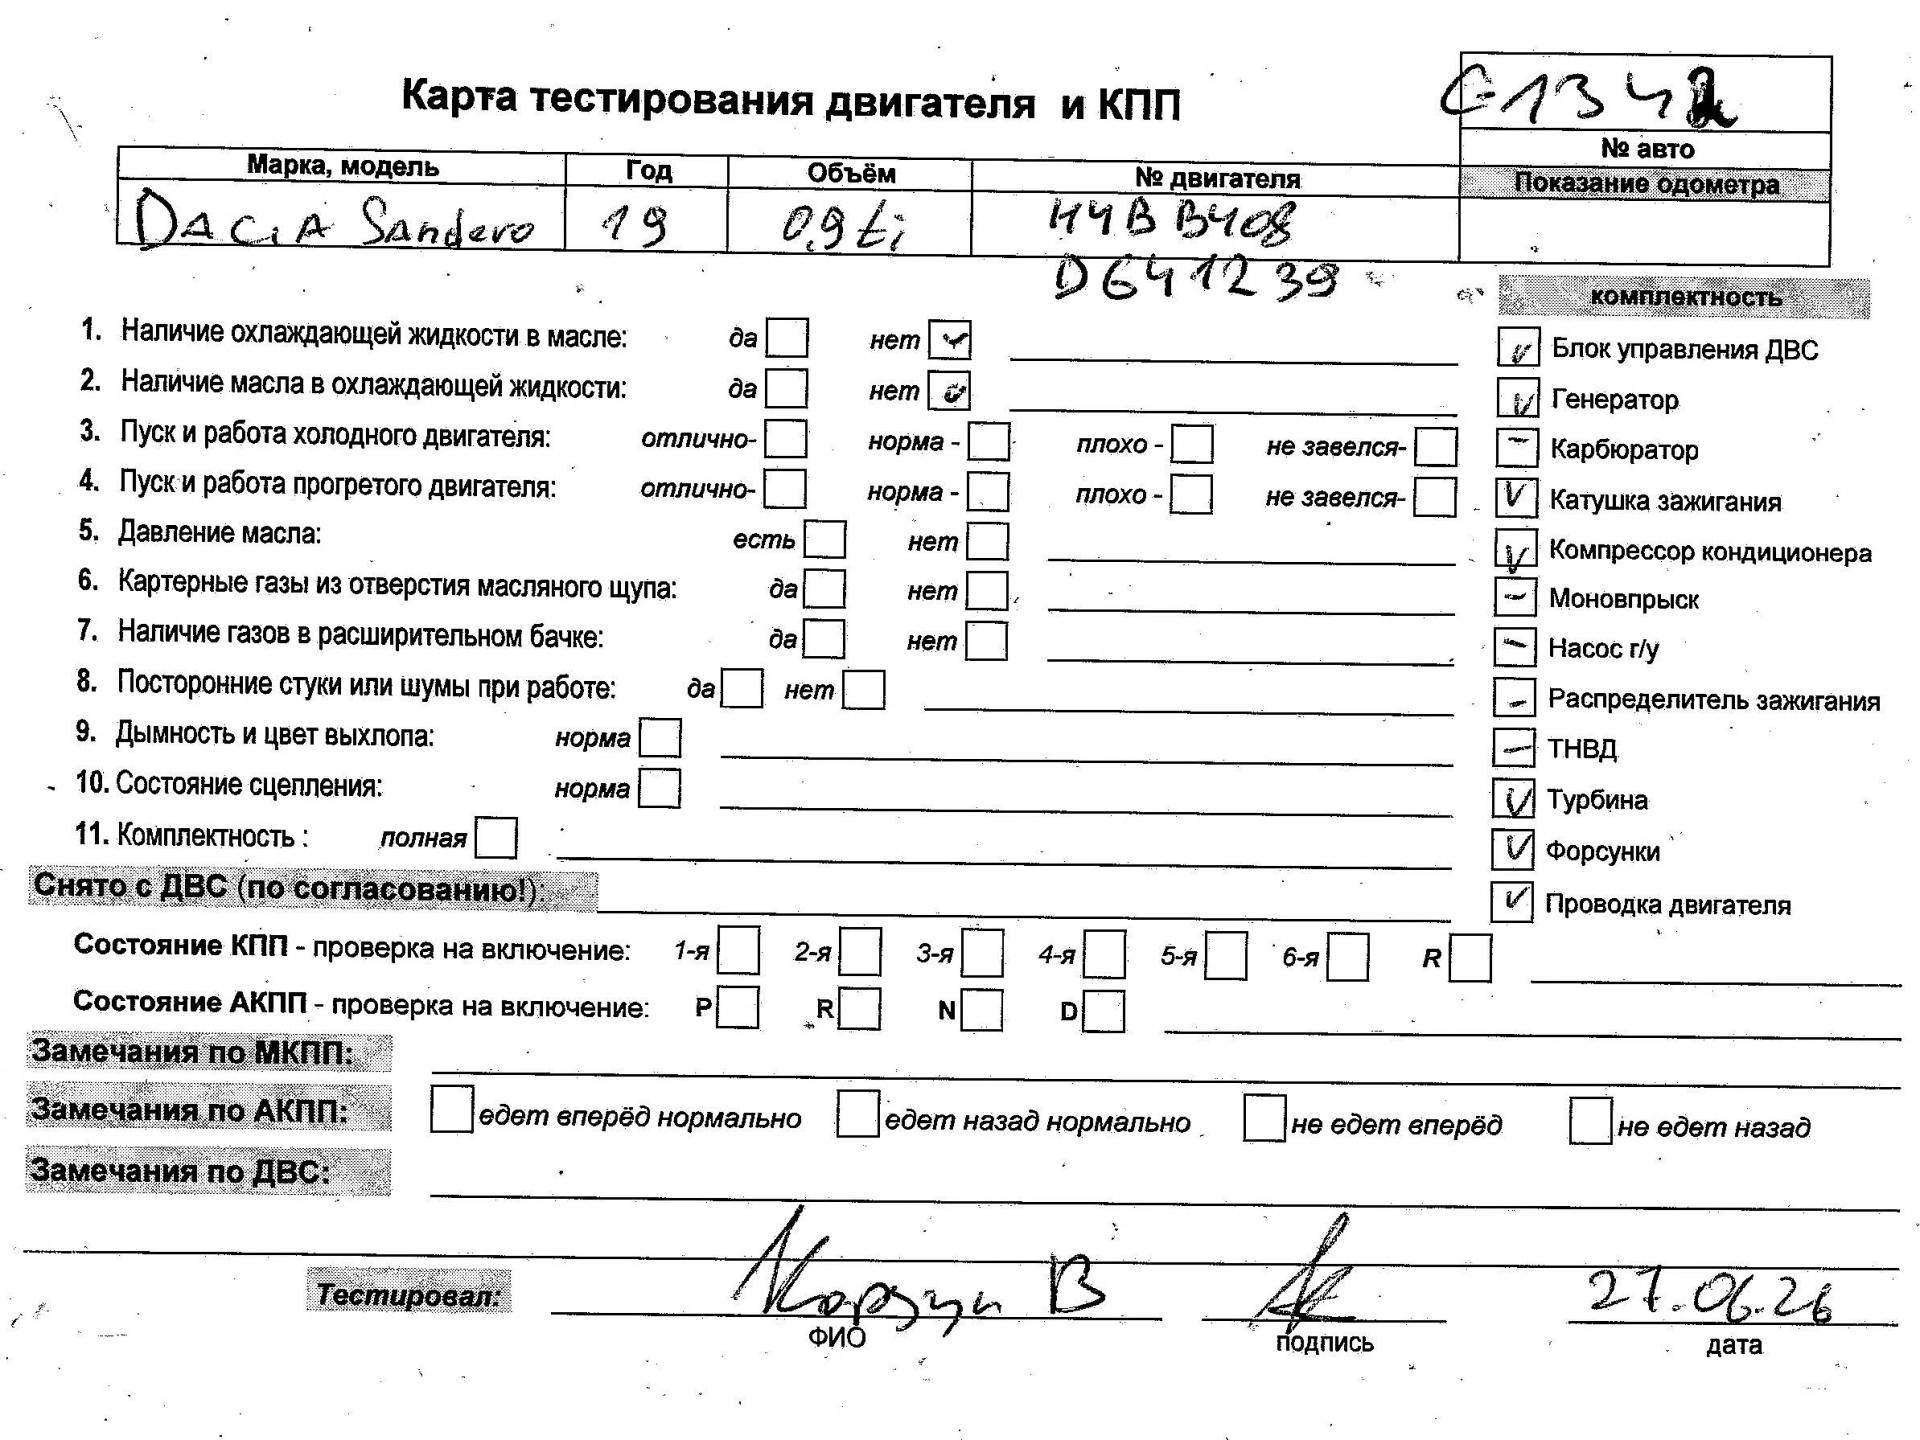 Карта тестирования двигателя и КПП
№ авто
Марка, модель Год Объём № двигателя Показание одометра
DACIA Sandero 19 0,9 ti H4B B408
D641239
комплектность
1. Наличие охлаждающей жидкости в масле: да нет ✓ ✓ Блок управления ДВС
2. Наличие масла в охлаждающей жидкости: да нет ✓ ✓ Генератор
3. Пуск и работа холодного двигателя: отлично- норма - плохо - не завелся- – Карбюратор
4. Пуск и работа прогретого двигателя: отлично- норма - плохо - не завелся- V Катушка зажигания
5. Давление масла: есть нет V Компрессор кондиционера
6. Картерные газы из отверстия масляного щупа: да нет – Моновпрыск
7. Наличие газов в расширительном бачке: да нет – Насос г/у
8. Посторонние стуки или шумы при работе: да нет – Распределитель зажигания
9. Дымность и цвет выхлопа: норма – ТНВД
10. Состояние сцепления: норма V Турбина
11. Комплектность : полная V Форсунки
Снято с ДВС (по согласованию!): V Проводка двигателя
Состояние КПП - проверка на включение: 1-я 2-я 3-я 4-я 5-я 6-я R
Состояние АКПП - проверка на включение: P R N D
Замечания по МКПП:
Замечания по АКПП: едет вперёд нормально едет назад нормально не едет вперёд не едет назад
Замечания по ДВС:
Тестировал: В 27.06.26
ФИО подпись дата